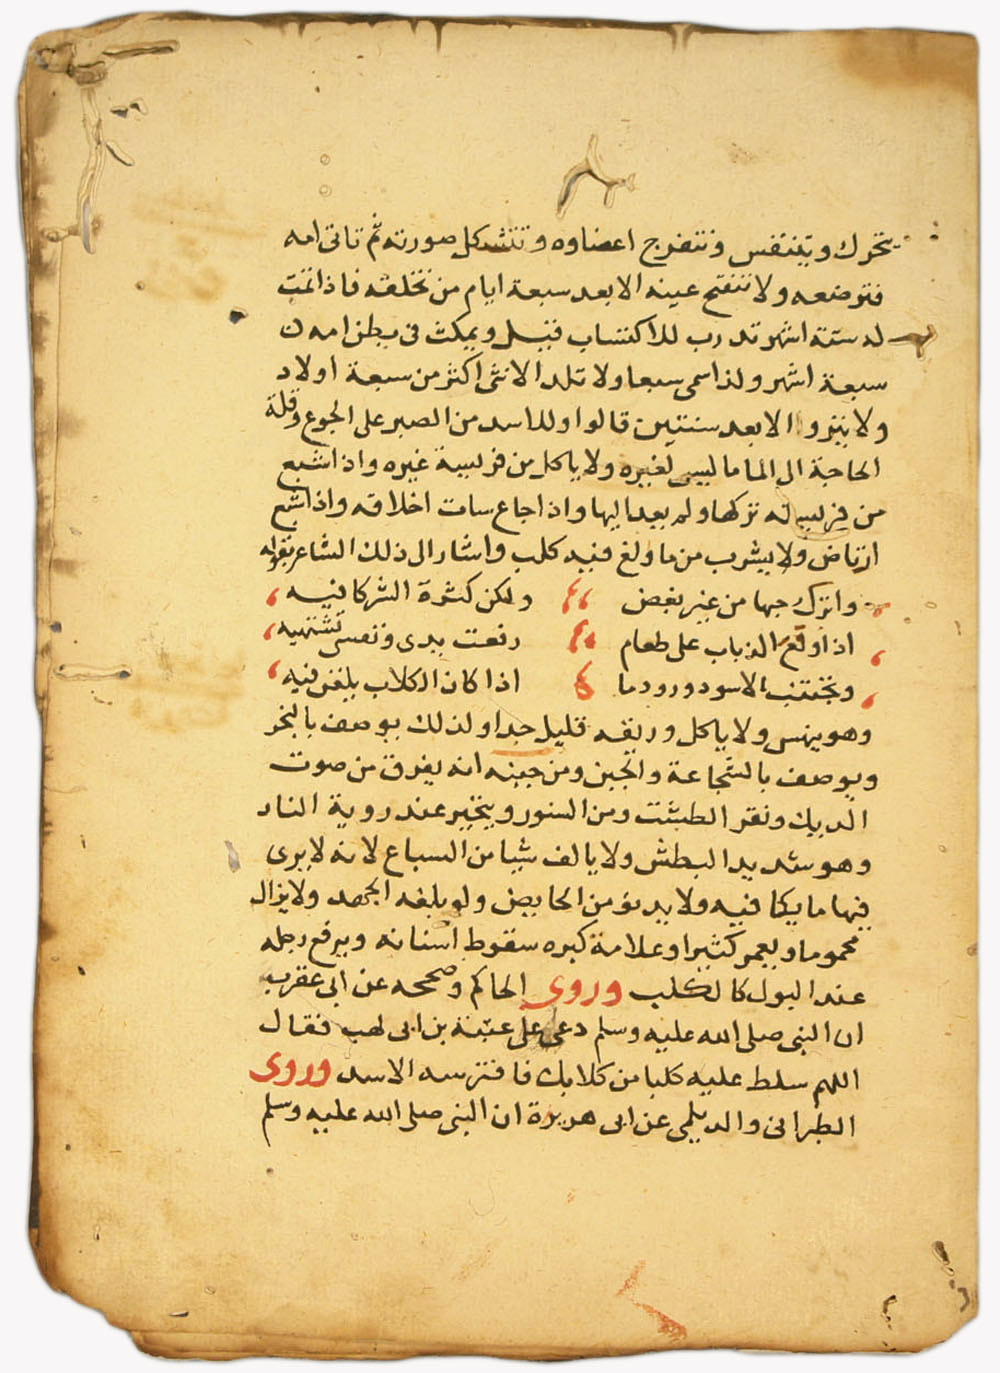 يتحرك ويتنفس وتتفرج اعضاوه وتتشكل صورته ثم تاتى امه
فترضعه ولا تنفتح عينه الا بعد سبعة ايام من تخلقه فاذا تمت
له ستة اشهر تدرب للاكتساب قيل ويمكث فى بطن امه ن
سبعة اشهر ولذا سمى سبعا ولا تلد الانثى اكثر من سبعة اولاد
ولا ينزوا الا بعد سنتين قالوا وللاسد من الصبر على الجوع وقلة
الحاجة الى الما ما ليس لغيره ولا ياكل من فريسة غيره واذا شبع
من فريسته تركها ولم يعد اليها واذا جاع سات اخلاقه واذا شبع
ارتاض ولا يشرب من ما ولغ فيه كلب واشار الى ذلك الشاعر بقوله
واترك حبها من غير بغض ولكن كثرة الشركا فيه
اذا وقع الذباب على طعام رفعت يدى ونفسى تشتهيه
وتجتنب الاسود ورود ما اذا كان الكلاب يلغن فيه
وهو ينهس ولا ياكل وريقه قليل جدا ولذلك يوصف بالبخر
ويوصف بالشجاعة والجبن ومن جبنه انه يفرق من صوت
الديك ونقر الطشت ومن السنور ويتحير عند روية النار
وهو شديد البطش ولا يالف شيا من السباع لانه لا يرى
فيها ما يكافيه ولا يدنو من الحايض ولو بلغه الجهد ولا يزال
محموما ويعمر كثيرا وعلامة كبره سقوط اسنانه ويرفع رجله
عند البول كالكلب وروى الحاكم وصححه عن ابى عقرب
ان النبى صلى الله عليه وسلم دعى على عتبة بن ابى لهب فقال
اللهم سلط عليه كلبا من كلابك فافترسه الاسد وروى
الطبرانى والديلمى عن ابى هريرة ان النبى صلى الله عليه وسلم